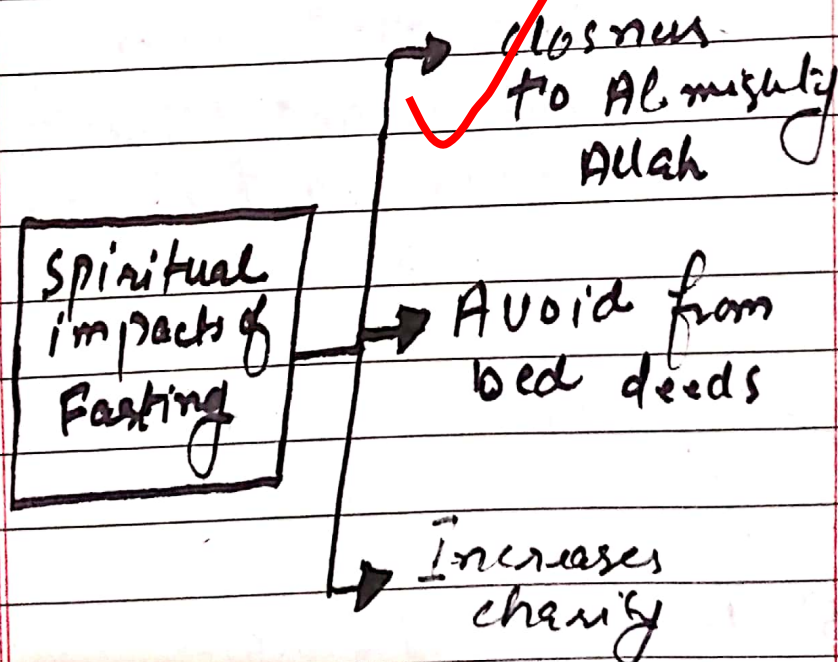 Spiritual
impacts of
Fasting
closnus
to Almighty
Allah
Avoid from
bed deeds
Increases
charity